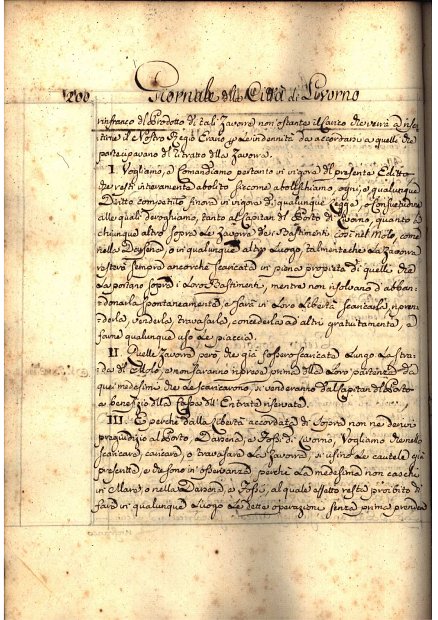 200 Giornale della Città di Livorno
rinfranco del Prodotto di tali Zavorre non ostante il Carico che verrà a risen
tirne il Nostro Regio Erario per le indennità da accordarsi a quelli che
partecipavano del ritratto della Zavorra.
I. Vogliamo, e Comandiamo pertanto in vigore del presente Editto
che resti interamente abolito siccome abolischiamo, ogni, e qualunque
Diritto competito finora in vigore di qualunque Legge, o Consuetudine
alle quali deroghiamo, tanto al Capitan del Porto di Livorno, quanto a
chiunque altro sopra le Zavorre dei Bastimenti così nel Molo, come
nella Darsena, o in qualunque altro Luogo, talmente che la Zavorra
resterà sempre ancorché scaricata in piena proprietà di quelli che
La portano sopra i Loro Bastimenti, mentre non risolvano di abban-
donarla spontaneamente, e sarà in Loro Libertà scaricarla, ripren-
derla, venderla, travasarla, concederla ad altri gratuitamente, o
farne qualunque uso Le piaccia.
II. Quelle Zavorre però, che già fossero scaricate Lungo La Stra
da del Molo, e non saranno riprese prima della Loro partenza da
quei medesimi che Le scaricarono, si venderanno dal Capitan del Porto
a benefizio della Cassa dell'Entrata riservate.
III. E perché dalla Libertà accordata di Sopra non ne derivi
pregiudizio al Porto, Darsena, e Fossi di Livorno, Vogliamo che nello
scaricare, caricare, o travasare La Zavorra, si usino Le cautele già
prescritte, e che sono in osservanza perché La medesima non caschi
in Mare, o nella Darsena, e Fossi, al quale effetto resta proibito di
fare in qualunque Luogo Le dette operazioni senza prima prender